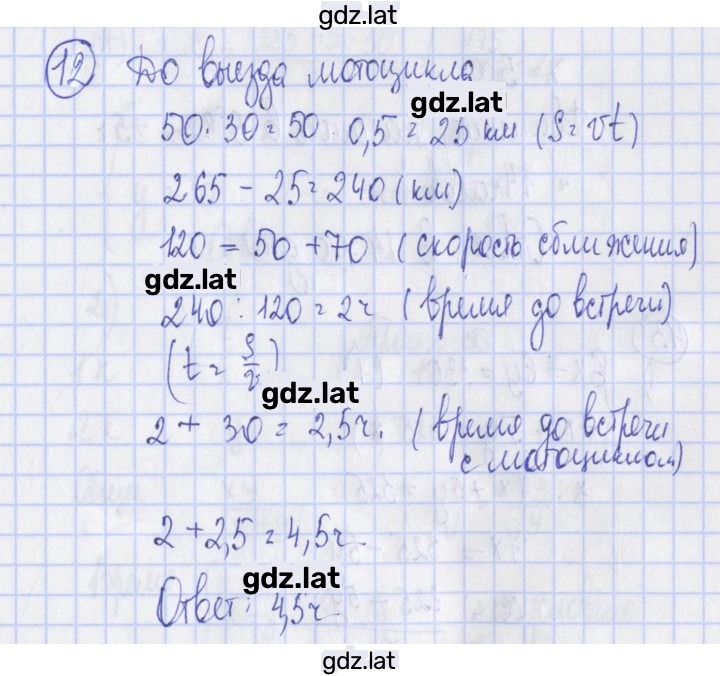 gdz.lat
12 До выезда мотоцикла
gdz.lat
50 · 30 = 50 · 0,5 = 25 км (S = vt)
265 - 25 = 240 (км)
120 = 50 + 70 (скорость сближения)
gdz.lat
240 : 120 = 2ч (время до встречи)
(t = S/v)
gdz.lat
2 + 30 = 2,5ч. (время до встречи
с мотоциклом)
2 + 2,5 = 4,5ч
gdz.lat
Ответ: 4,5ч
gdz.lat